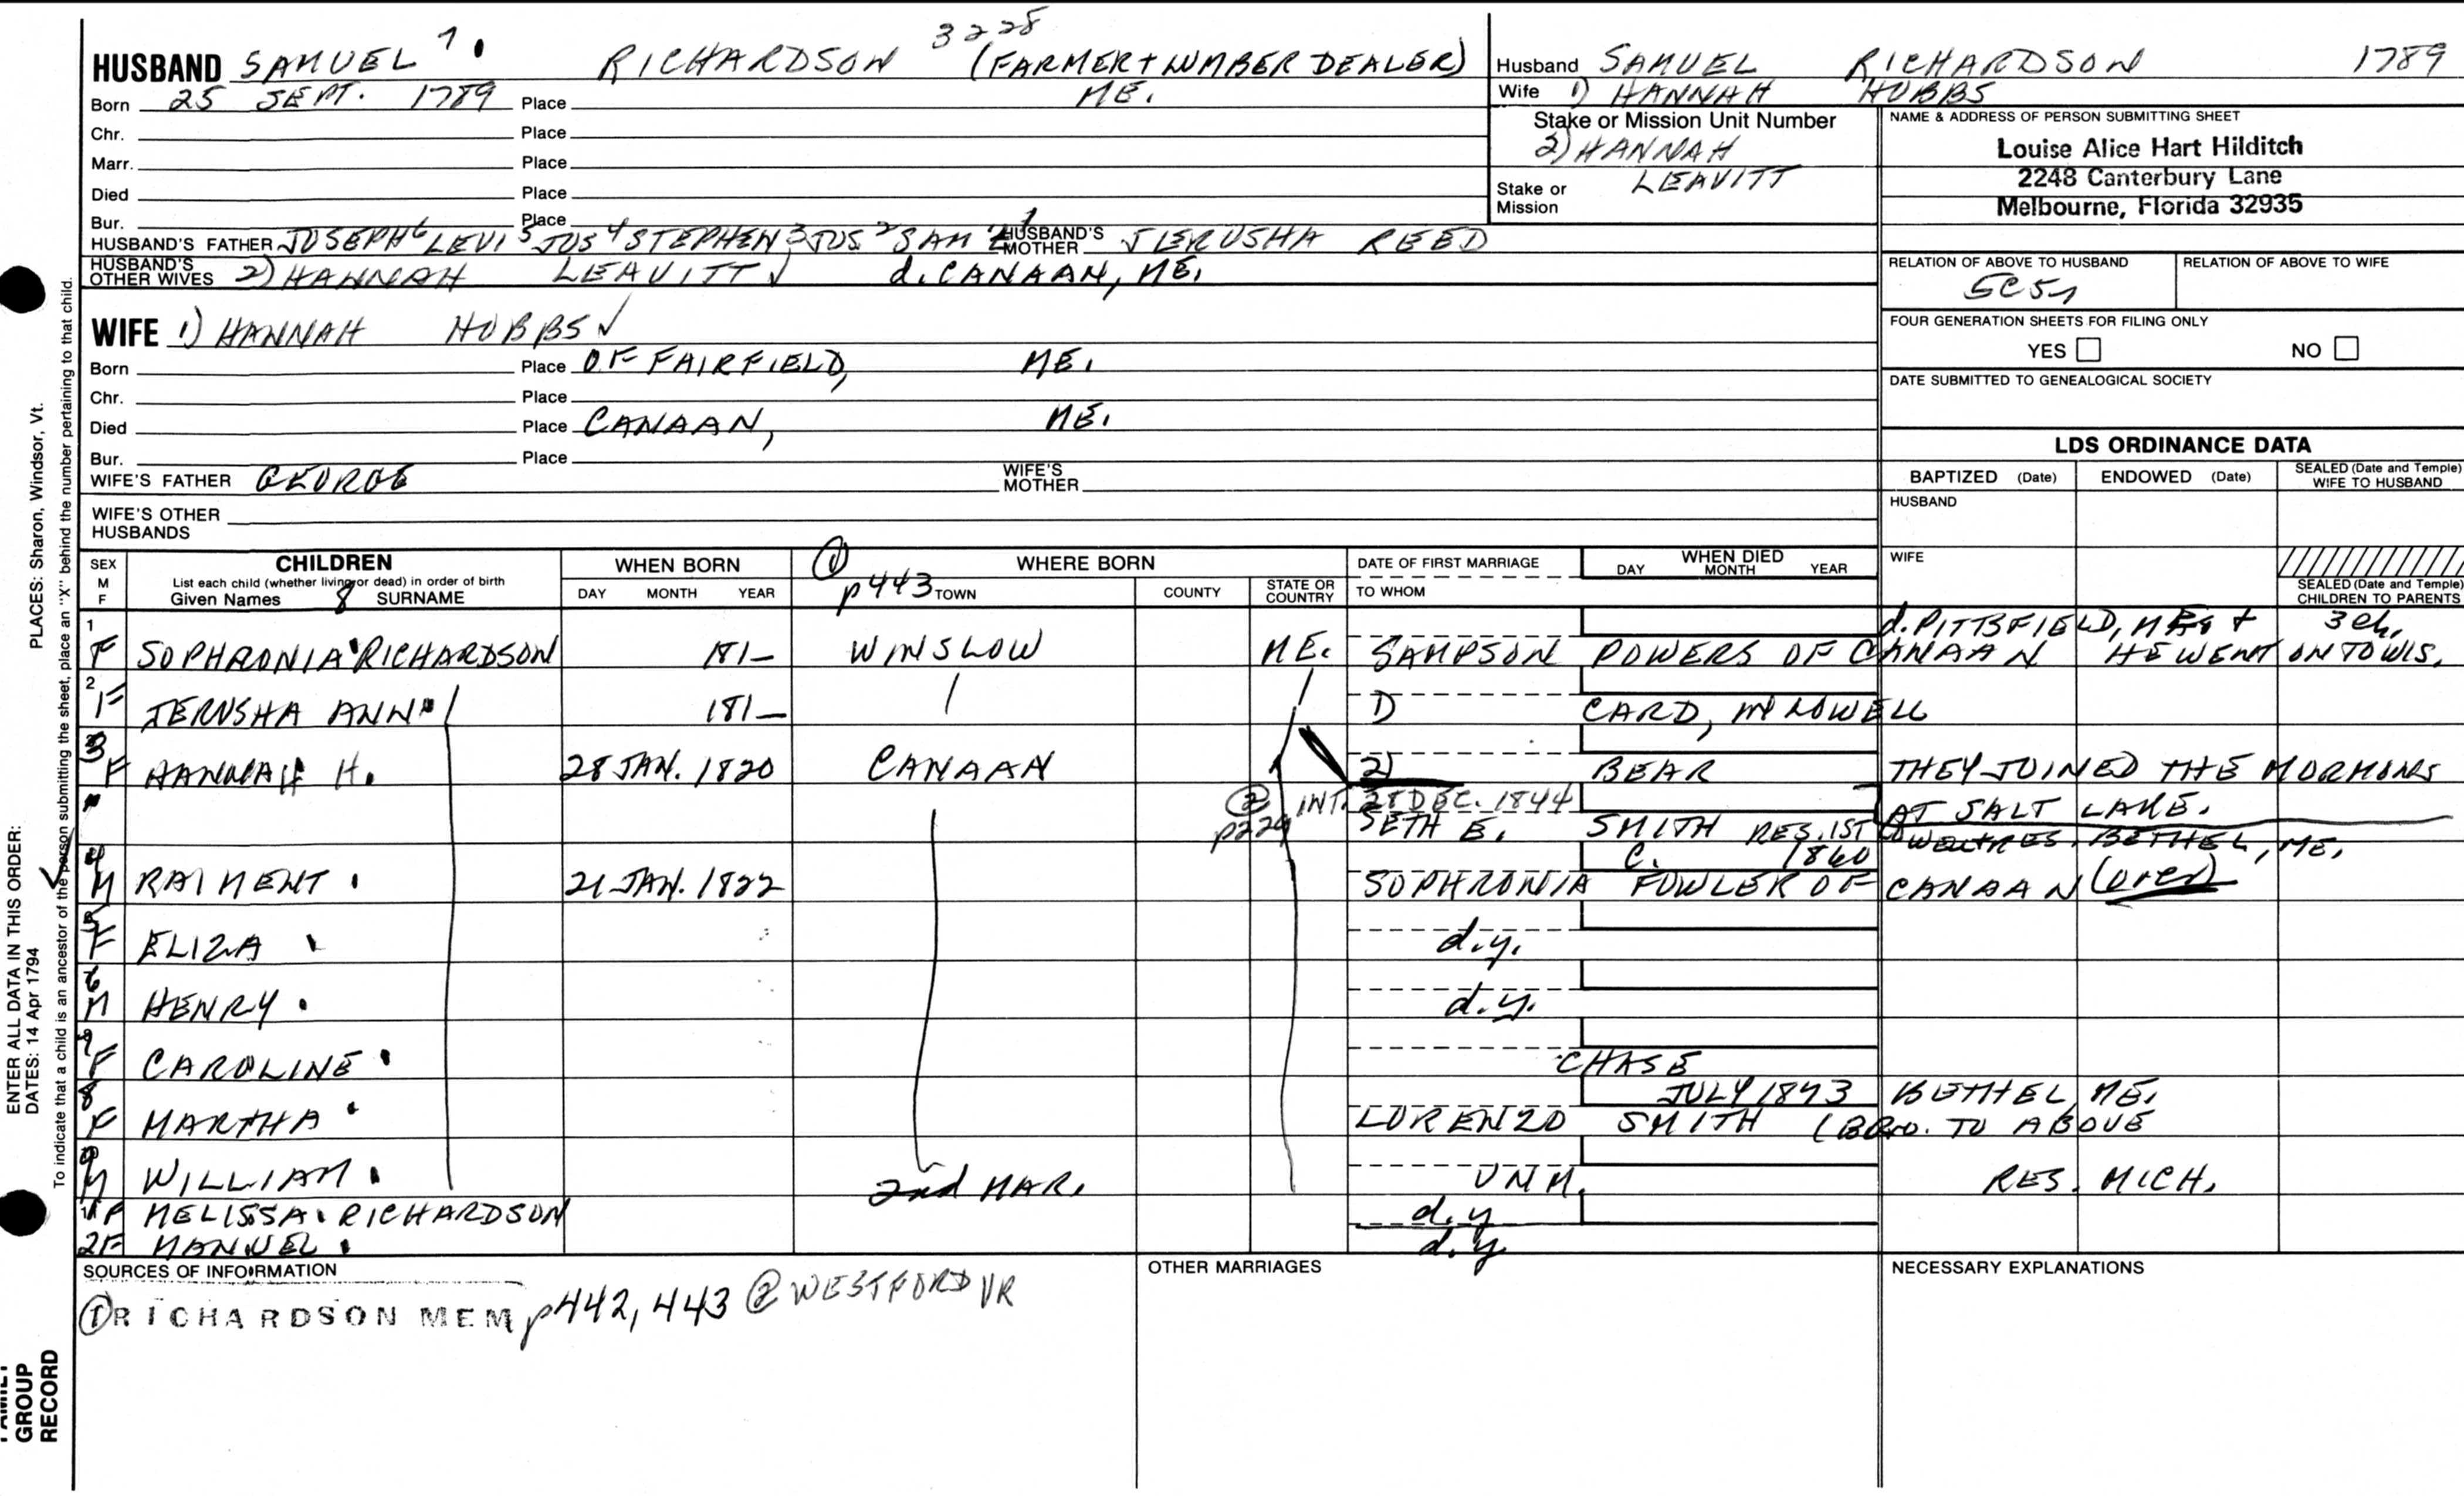 3228
HUSBAND SAMUEL 7. RICHARDSON (FARMER + LUMBER DEALER)
Born 25 SEPT. 1789 Place ME.
Chr. Place
Marr. Place
Died Place
Bur. Place
HUSBAND'S FATHER JOSEPH6 LEVI5 JOS4 STEPHEN3 JOS2 SAM'L1 HUSBAND'S MOTHER JERUSHA REED
HUSBAND'S OTHER WIVES 2) HANNAH LEAVITT √ d. CANAAN, ME.
WIFE 1) HANNAH HOBBS √
Born Place OF FAIRFIELD, ME.
Chr. Place
Died Place CANAAN, ME.
Bur. Place
WIFE'S FATHER GEORGE WIFE'S MOTHER
WIFE'S OTHER HUSBANDS
Husband SAMUEL RICHARDSON 1789
Wife 1) HANNAH HOBBS
Stake or Mission Unit Number
2) HANNAH
LEAVITT
Stake or Mission
NAME & ADDRESS OF PERSON SUBMITTING SHEET
Louise Alice Hart Hilditch
2248 Canterbury Lane
Melbourne, Florida 32935
RELATION OF ABOVE TO HUSBAND RELATION OF ABOVE TO WIFE
5C5
FOUR GENERATION SHEETS FOR FILING ONLY
YES NO
DATE SUBMITTED TO GENEALOGICAL SOCIETY
LDS ORDINANCE DATA
BAPTIZED (Date) ENDOWED (Date) SEALED (Date and Temple) WIFE TO HUSBAND
HUSBAND
WIFE
SEALED (Date and Temple) CHILDREN TO PARENTS
SEX M F
CHILDREN
List each child (whether living or dead) in order of birth
Given Names 8 SURNAME
WHEN BORN
DAY MONTH YEAR
① p443
WHERE BORN
TOWN COUNTY STATE OR COUNTRY
DATE OF FIRST MARRIAGE
TO WHOM
WHEN DIED
DAY MONTH YEAR
d. PITTSFIELD, ME. + 3 ch.
1 F SOPHRONIA RICHARDSON 181_ WINSLOW ME. SAMPSON POWERS OF CANAAN HE WENT ON TO WIS.
2 F JERUSHA ANN 181_ 1) CARD, M LOWELL
3 F HANNAH H. 28 JAN. 1820 CANAAN 2) BEAR THEY JOINED THE MORMONS
AT SALT LAKE.
② p229 INT. 28 DEC. 1844
SETH E. SMITH RES. 1ST BETHEL, ME.
C. 1860
4 M RAIMENT 21 JAN. 1822 SOPHRONIA FOWLER OF CANAAN (over)
5 F ELIZA d.y.
6 M HENRY d.y.
7 F CAROLINE CHASE
JULY 1843 BETHEL, ME.
8 F MARTHA LORENZO SMITH (BRO. TO ABOVE
9 M WILLIAM UNM. RES. MICH.
2nd MAR.
1 F MELISSA RICHARDSON d.y
2 F MANUEL d.y.
SOURCES OF INFORMATION
① RICHARDSON MEM p442, 443 ② WESTFORD VR
OTHER MARRIAGES
NECESSARY EXPLANATIONS
ENTER ALL DATA IN THIS ORDER:
DATES: 14 Apr 1794 PLACES: Sharon, Windsor, Vt.
To indicate that a child is an ancestor of the person submitting the sheet, place an "X" behind the number pertaining to that child.
FAMILY
GROUP
RECORD